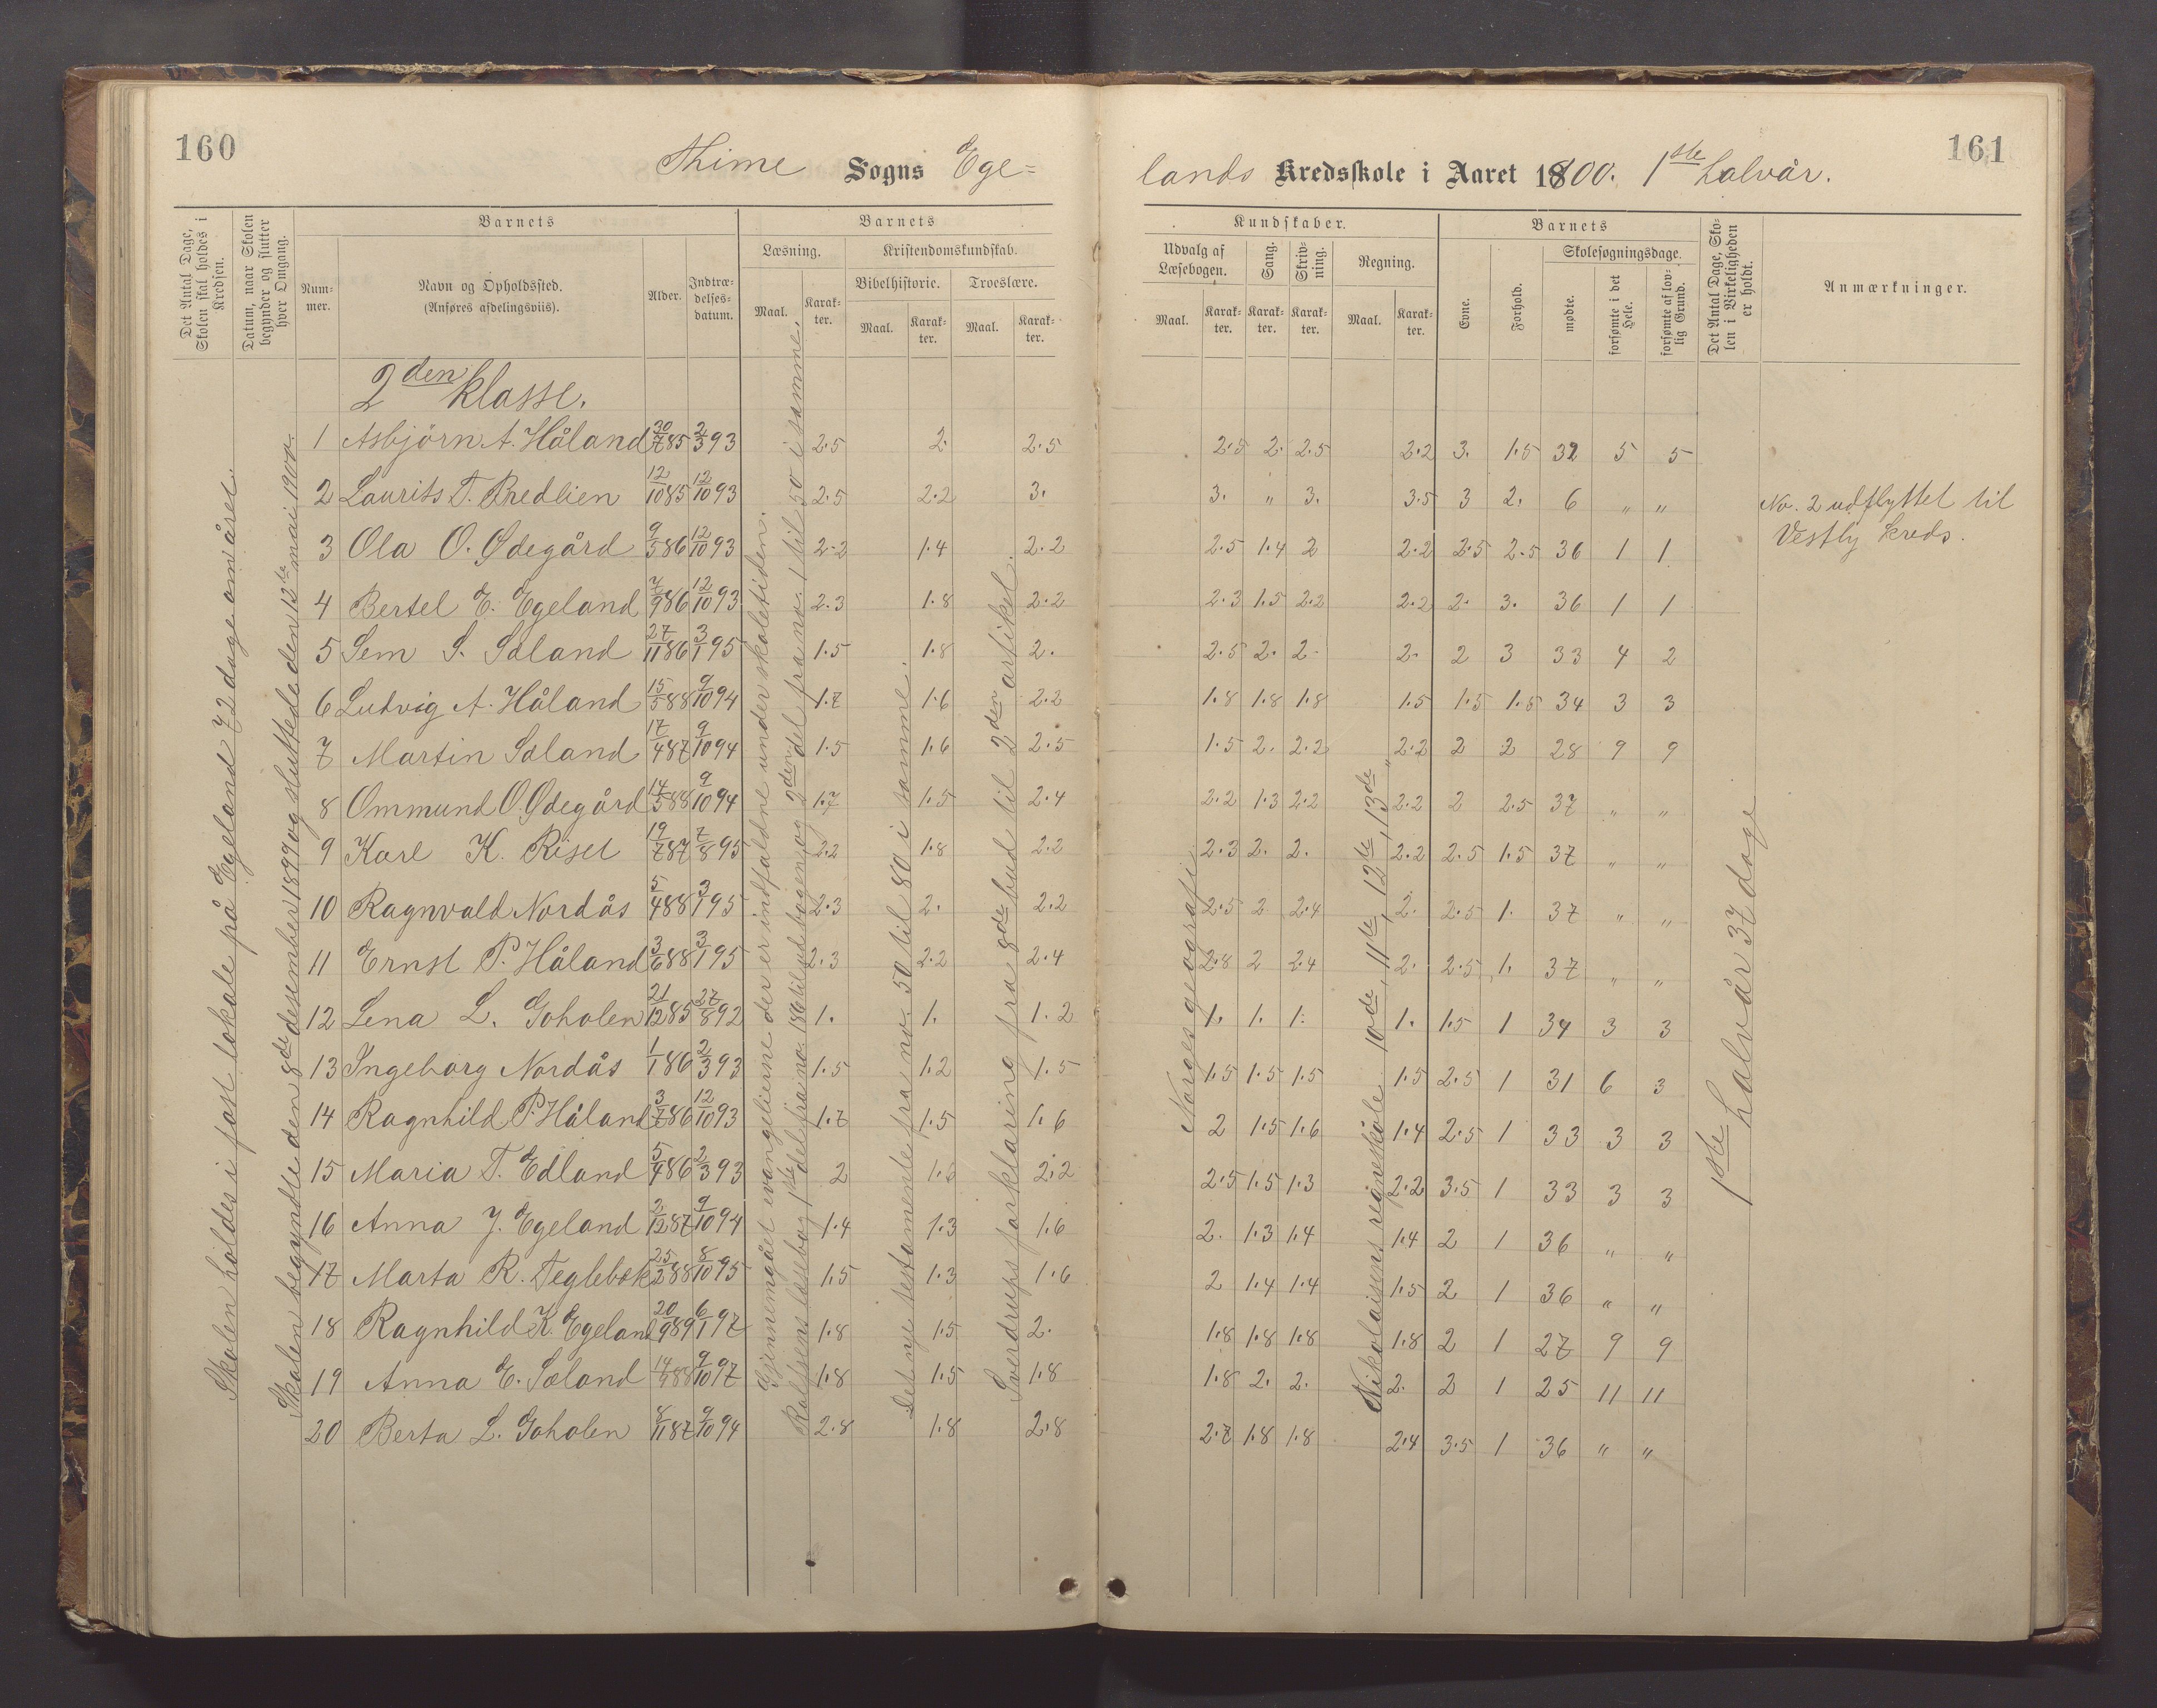 160
Thime Sogns Ege=
lands Kredsskole i Aaret 1800. 1ste halvår.
161
Det Antal Dage, Skolen skal holdes i Kredsen.
Datum, naar Skolen begynder og slutter hver Omgang.
Barnets
Num-mer.
Navn og Opholdssted.
(Anføres afdelingsviis).
Alder.
Indtræ-delses-datum.
Barnets
Læsning.
Maal.
Karak-ter.
Kristendomskundskab.
Bibelhistorie.
Maal.
Karak-ter.
Troeslære.
Maal.
Karak-ter.
Kundskaber.
Udvalg af Læsebogen.
Maal.
Karak-ter.
Sang.
Karak-ter.
Skriv-ning.
Karak-ter.
Regning.
Maal.
Karak-ter.
Barnets
Evne.
Forhold.
Skolesøgningsdage.
mødte.
forsømte i det Hele.
forsømte af lov-lig Grund.
Det Antal Dage, Sko-len i Virkeligheden er holdt.
Anmærkninger.
Skolen holdes i fast lokale på Egeland 72 dage om året.
Skolen begyndte den 8de desember 1899 og sluttede den 12te mai 1900.
Gjennemgået evangelierne der er indfaldne under skoletiden.
Rolfsens læsebog 1ste del fra no. 186 til ud bogen, og 2den del fra no. 1 til 50 i samme.
Det nye testamente fra no. 50 til 80 i samme.
Sverdrups forklaring fra 8de bud til 2den artikel.
Norges geografi
Nikolaisens regneskole 10de, 11te, 12te, 13de
1ste halvår 37 dage
2den klasse.
1 Asbjörn A. Håland 30/7 85 2/3 93 2.5 2. 2.5 2.5 2. 2.5 2.2 3. 1.5 32 5 5
2 Laurits T. Bredlien 12/10 85 12/10 93 2.5 2.2 3. 3. " 3. 3.5 3 2. 6 " " No. 2 udflyttet til
Vestly kreds.
3 Ola O. Ødegård 9/5 86 12/10 93 2.2 1.4 2.2 2.5 1.4 2 2.2 2.5 2.5 36 1 1
4 Bertel E. Egeland 7/9 86 12/10 93 2.3 1.8 2.2 2.3 1.5 2.2 2.2 2. 3. 36 1 1
5 Sem S. Sæland 27/11 86 3/1 95 1.5 1.8 2. 2.5 2. 2. 2. 2 3 33 4 2
6 Ludvig A. Håland 15/5 88 9/10 94 1.7 1.6 2.2 1.8 1.8 1.8 1.5 1.5 1.5 34 3 3
7 Martin Sæland 17/4 87 9/10 94 1.5 1.6 2.5 1.5 2. 2.2 2.2 2 2 28 9 9
8 Ommund O. Ødegård 14/5 88 9/10 94 1.7 1.5 2.4 2.2 1.3 2.2 2.2 2 2.5 37 " "
9 Karl K. Riset 19/7 87 7/8 95 2.2 1.8 2.2 2.3 2. 2. 2.2 2.5 1.5 37 " "
10 Ragnvald Nordås 5/4 88 3/1 95 2.3 2. 2.2 2.5 2 2.4 2. 2.5 1. 37 " "
11 Ernst P. Håland 3/6 88 3/1 95 2.3 2.2 2.4 2.8 2 2.4 2. 2.5 1. 37 " "
12 Lena L. Goholen 21/12 85 27/8 92 1. 1. 1.2 1. 1. 1. 1. 1.5 1 34 3 3
13 Ingeborg Nordås 1/1 86 2/3 93 1.5 1.2 1.5 1.5 1.5 1.5 1.5 2.5 1 31 6 3
14 Ragnhild P. Håland 3/7 86 12/10 93 1.7 1.5 1.6 2 1.5 1.6 1.4 2.5 1 33 3 3
15 Maria T. Edland 5/4 86 2/3 93 2 2.2 2.5 1.5 1.3 2.2 3.5 1 33 3 3
16 Anna J. Egeland 2/12 87 9/10 94 1.4 1.3 1.6 2. 1.3 1.4 1.4 2 1 36 " "
17 Marta R. Teglebæk 25/2 88 8/10 95 1.5 1.3 1.6 2 1.4 1.4 1.5 2 1 36 " "
18 Ragnhild K. Egeland 20/9 89 6/1 97 1.8 1.5 2. 1.8 1.8 1.8 1.8 2 1 27 9 9
19 Anna E. Sæland 14/7 88 9/10 97 1.8 1.5 1.8 1.8 2. 2. 2. 2 1 25 11 11
20 Berta L. Goholen 8/11 87 9/10 94 2.8 1.8 2.8 2.7 1.8 1.8 2.4 3.5 1 36 " "